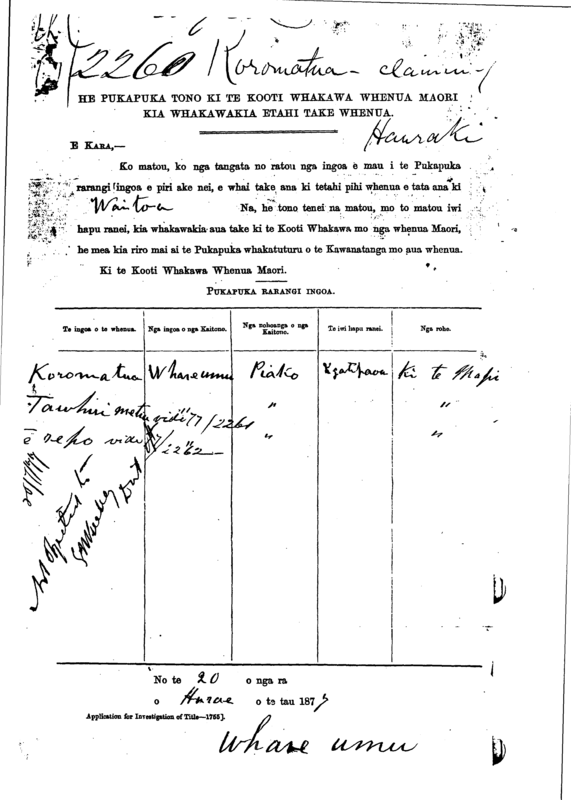 2260 Koromatua - claim
HE PUKAPUKA TONO KI TE KOOTI WHAKAWA WHENUA MAORI
KIA WHAKAWAKIA ETAHI TAKE WHENUA.
Hauraki
E KARA,—
Ko matou, ko nga tangata no ratou nga ingoa e mau i te Pukapuka
rarangi ingoa e piri ake nei, e whai take ana ki tetahi pihi whenua e tata ana ki
Waitoa Na, he tono tenei na matou, mo to matou iwi
hapu ranei, kia whakawakia aua take ki te Kooti Whakawa mo nga whenua Maori,
he mea kia riro mai ai te Pukapuka whakatuturu o te Kawanatanga mo aua whenua.
Ki te Kooti Whakawa Whenua Maori.
PUKAPUKA RARANGI INGOA.
Te ingoa o te whenua. Nga ingoa o nga Kaitono. Nga nohoanga o nga Kaitono. Te iwi hapu ranei. Nga rohe.
Koromatua Whareumu Piako Ngatipaoa Ki te Mapi
Tawhui vide 77/2261 " "
e repo vide 77/2262 " "
20/7/77
Not objected to
No te 20 o nga ra
o Hurae o te tau 1877
Application for Investigation of Title—1755].
Whare umu